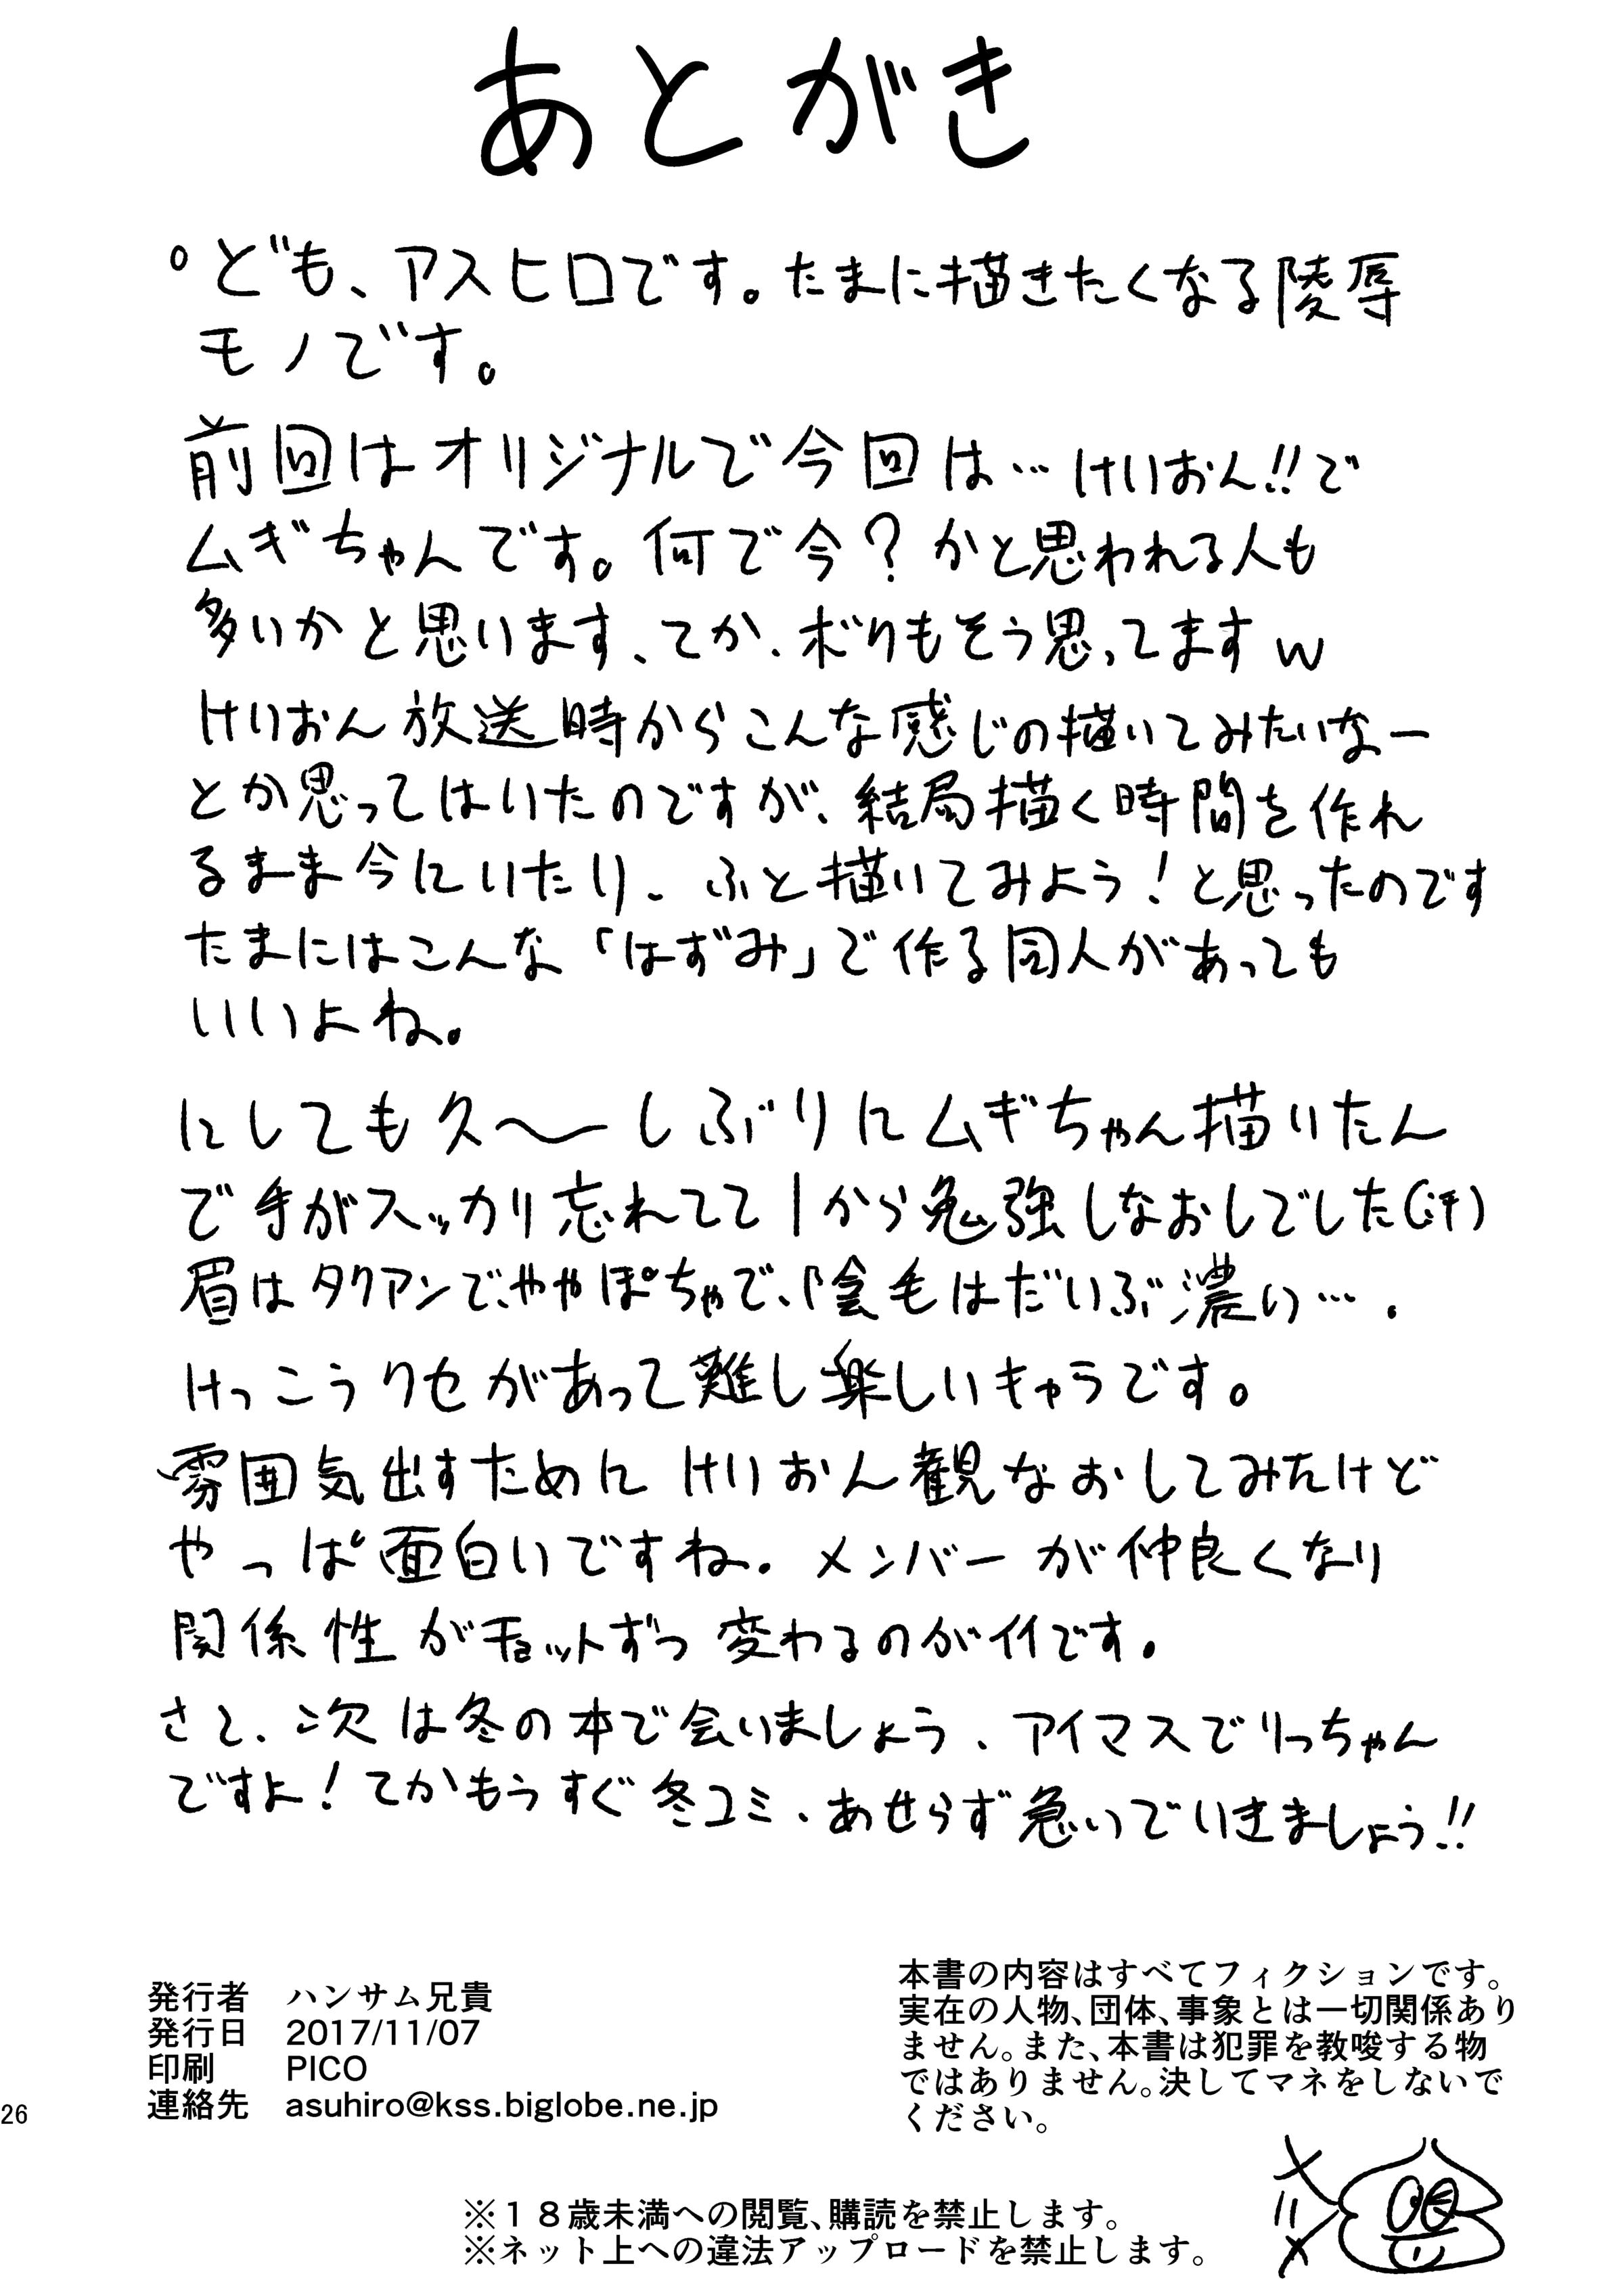 あとがき
ども、アスヒロです。たまに描きたくなる陵辱
モノです。
前回はオリジナルで今回は…けいおん!!で
ムギちゃんです。何で今？かと思われる人も
多いかと思います、てか、ボクもそう思ってますw
けいおん放送時からこんな感じの描いてみたいなー
とか思ってはいたのですが、結局描く時間を作れ
るまま今にいたり、ふと描いてみよう！と思ったのです
たまにはこんな「はずみ」で作る同人があっても
いいよね。
にしても久〜しぶりにムギちゃん描いたん
で手がスッカリ忘れてて1から勉強しなおしでした(汗)
眉はタクアンで、ややぽちゃで、陰毛はだいぶ濃い…。
けっこうクセがあって難し楽しいキャラです。
雰囲気出すために けいおん観なおしてみたけど
やっぱ面白いですね。メンバーが仲良くなり
関係性がチョットずつ変わるのがイイです。
さて、次は冬の本で会いましょう、アイマスでりっちゃん
ですよ！てかもうすぐ冬コミ、あせらず急いでいきましょう!!
発行者 ハンサム兄貴
発行日 2017/11/07
印刷 PICO
連絡先 asuhiro@kss.biglobe.ne.jp
本書の内容はすべてフィクションです。
実在の人物、団体、事象とは一切関係あり
ません。また、本書は犯罪を教唆する物
ではありません。決してマネをしないで
ください。
26
※１８歳未満への閲覧、購読を禁止します。
※ネット上への違法アップロードを禁止します。